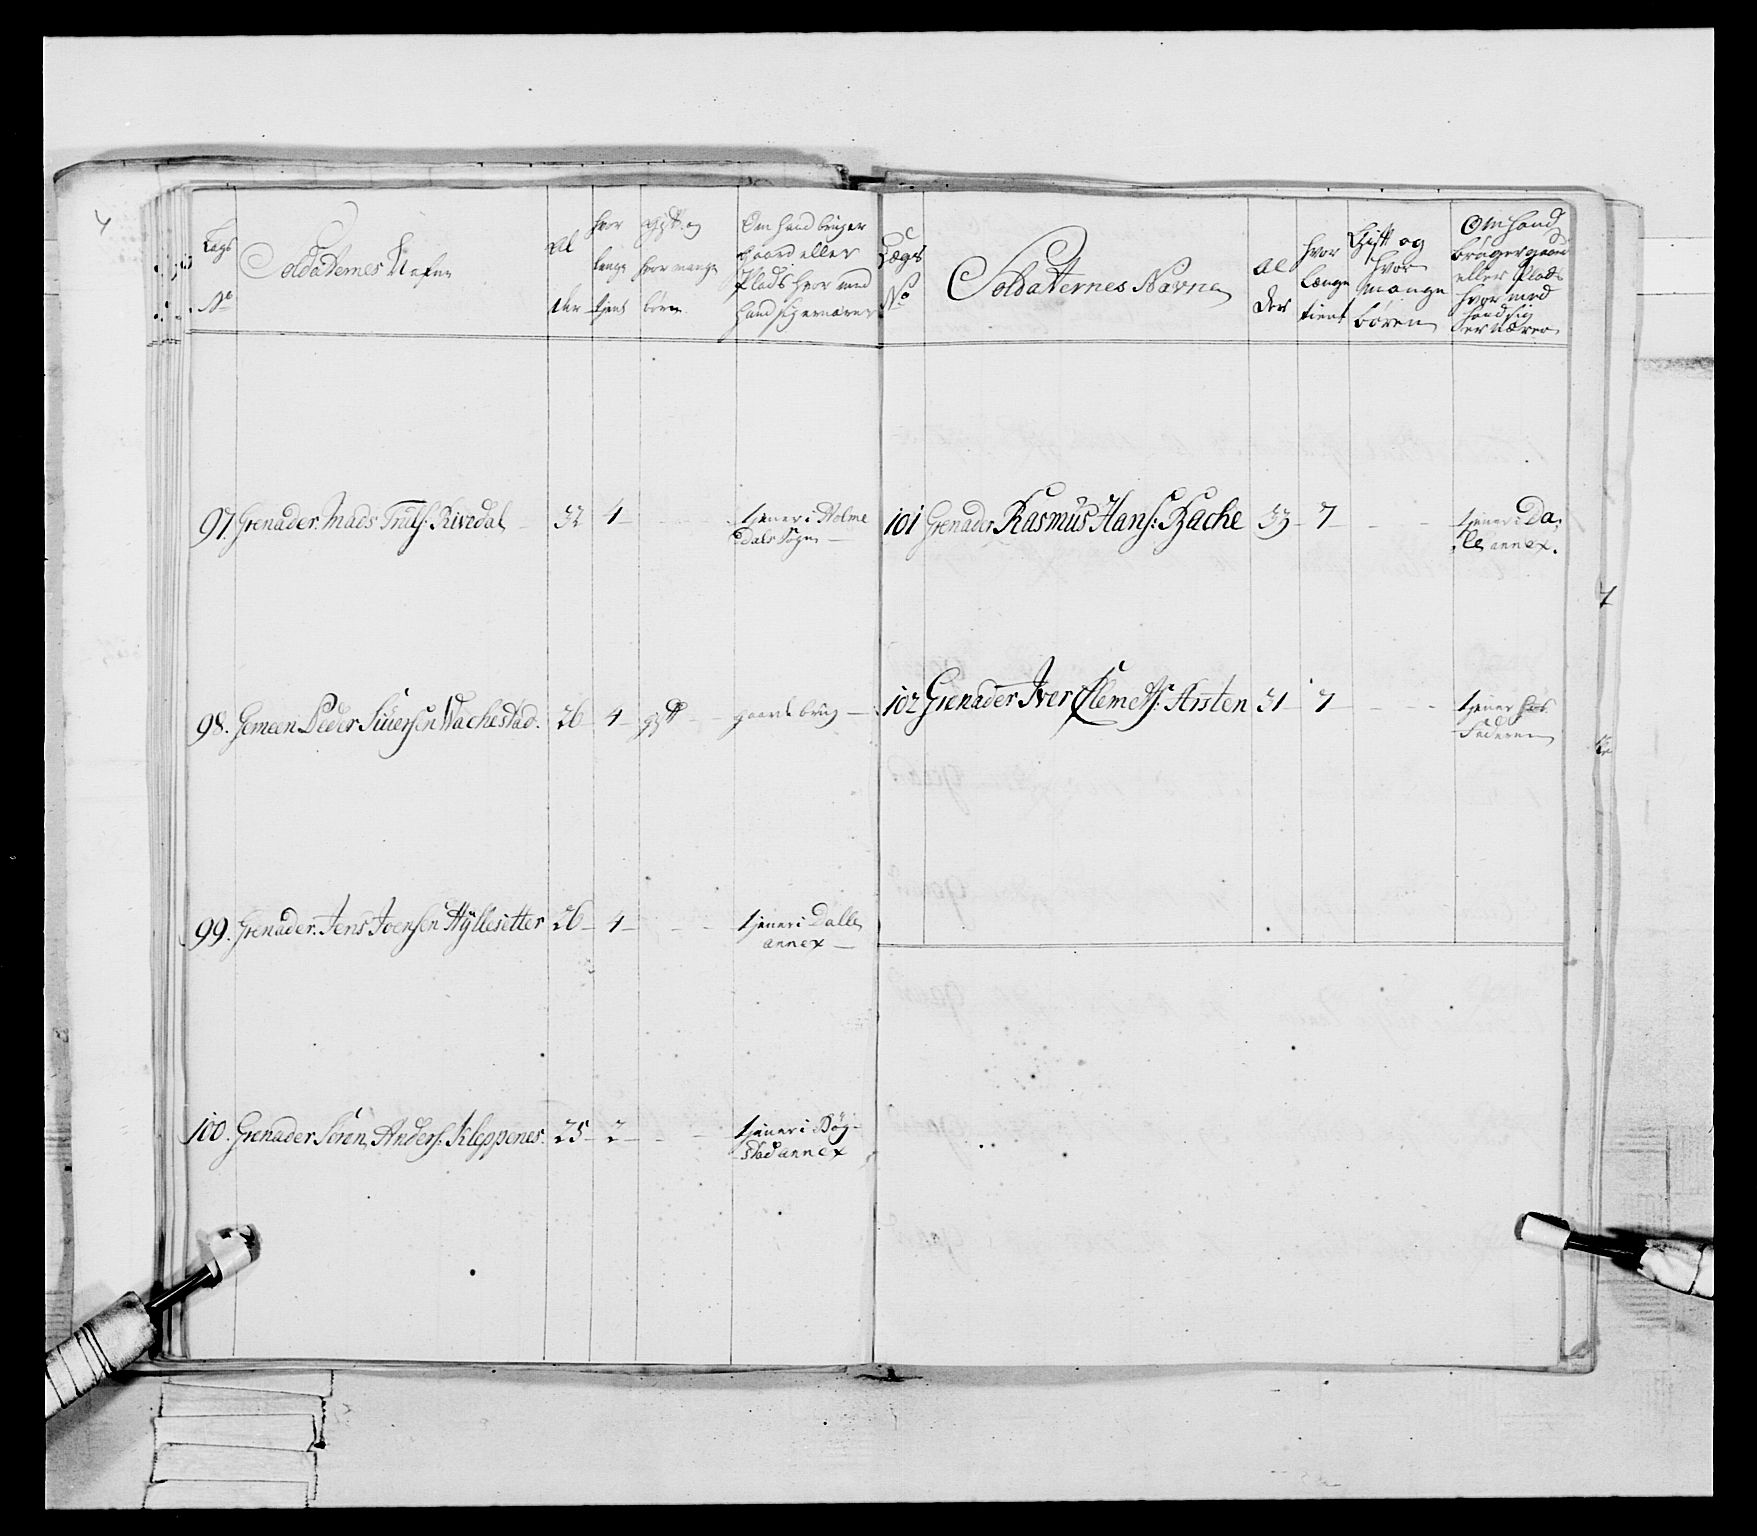 Lægs
No
Soldaternes Nafne
Al
der
hvor
lenge
tjent
gift og
hvor mange
børn
Om hand bruger
gaard eller
Plads hvor med
hand sig ernærer
97. Grenader Mads Truls: Rivedal 32 4 tjener i Holme
dals Sogn
98. Gemeen Peder Siursen Wachestad. 26 4 gift gaards brug
99. Grenader. Jens Joensen Hÿllesetter 26 4 tjener i Dalle
annex
100. Grenader Søren Anders: Kleppenes 25 2 tjener i Bÿg
stad annex
Lægs
No
Soldaternes Navne
Al
der
hvor
længe
tient
Gift og
hvor
mange
børen
Om hand
bruger gaard
eller Plads
hvor med
hand sig
ernærer
101 Grenader Rasmus Hans: Bache 33 7 tjener i Da-
le annex.
102 Grenader Iver Clemets: Arsten 31 7 tjener hos
Faderen